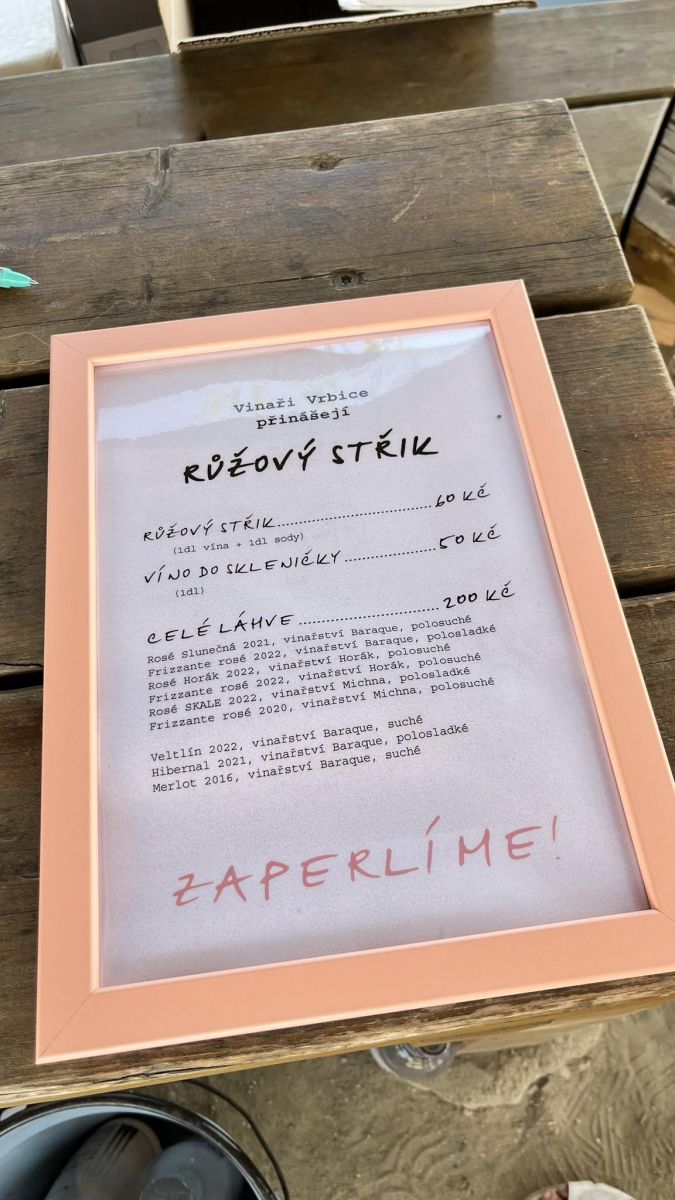 Vinaři Vrbice
přinášejí
RŮŽOVÝ STŘIK
RŮŽOVÝ STŘIK.................................60 Kč
(1dl vína + 1dl sody)
VÍNO DO SKLENIČKY....................50 Kč
(1dl)
CELÉ LÁHVE..............................200 Kč
Rosé Slunečná 2021, vinařství Baraque, polosuché
Frizzante rosé 2022, vinařství Baraque, polosladké
Rosé Horák 2022, vinařství Horák, polosuché
Frizzante rosé 2022, vinařství Horák, polosuché
Rosé SKALE 2022, vinařství Michna, polosladké
Frizzante rosé 2020, vinařství Michna, polosuché
Veltlín 2022, vinařství Baraque, suché
Hibernal 2021, vinařství Baraque, polosladké
Merlot 2016, vinařství Baraque, suché
ZAPERLÍME!